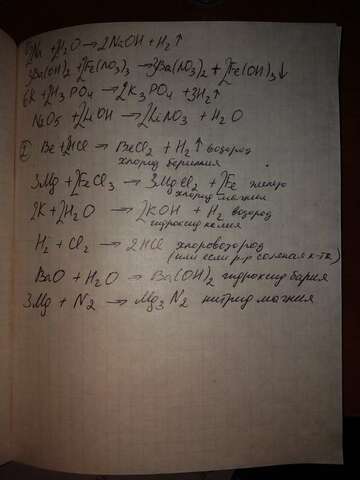 2Na + 2H2O → 2NaOH + H2↑
3Ba(OH)2 + 2Fe(NO3)3 → 3Ba(NO3)2 + 2Fe(OH)3↓
6K + 2H3PO4 → 2K3PO4 + 3H2↑
N2O5 + 2LiOH → 2LiNO3 + H2O
Be + 2HCl → BeCl2 + H2↑ водород
хлорид бериллия
3Mg + 2FeCl3 → 3MgCl2 + 2Fe железо
хлорид магния
2K + 2H2O → 2KOH + H2 водород
гидроксид калия
H2 + Cl2 → 2HCl хлороводород
(или если р-р соляная к-та)
BaO + H2O → Ba(OH)2 гидроксид бария
3Mg + N2 → Mg3N2 нитрид магния